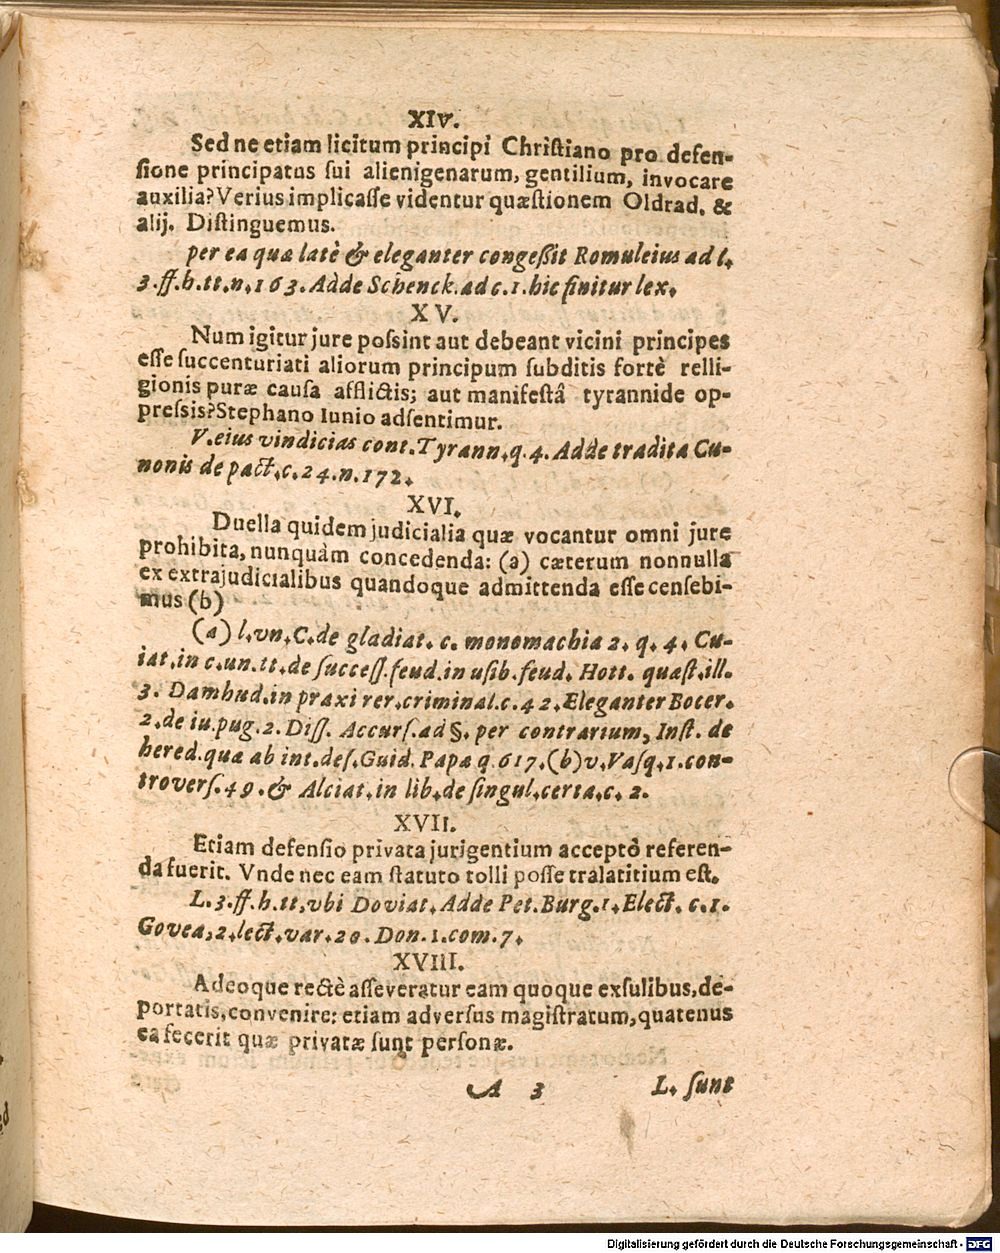 XIV.
Sed ne etiam licitum principi Christiano pro defen-
sione principatus sui alienigenarum, gentilium, invocare
auxilia? Verius implicasse videntur quæstionem Oldrad. &
alij. Distinguemus.
per ea quæ latè & eleganter congeßit Romuleius ad l.
3.ff.h.tt.n.163. Adde Schenck.ad c.1.hic finitur lex.
XV.
Num igitur jure possint aut debeant vicini principes
esse succenturiati aliorum principum subditis fortè relli-
gionis puræ causa afflictis; aut manifestâ tyrannide op-
pressis? Stephano Iunio adsentimur.
V.eius vindicias cont.Tyrann.q.4. Adde tradita Cu-
nonis de pact.c.24.n.172.
XVI.
Duella quidem judicialia quæ vocantur omni jure
prohibita, nunquàm concedenda: (a) cæterum nonnulla
ex extrajudicialibus quandoque admittenda esse censebi-
mus (b)
(a) l.vn.C.de gladiat. c. monomachia 2. q. 4. Cu-
iat.in c.un.tt.de success.feud.in usib.feud. Hott. quæst.ill.
3. Damhud.in praxi rer.criminal.c.42.Eleganter Bocer.
2.de iu.pug.2. Diss. Accurs.ad §. per contrarium, Inst. de
hered.quæ ab int.def.Guid. Papa q.617.(b)v.Vasq.1.con-
trovers.49.& Alciat.in lib.de singul.certa.c. 2.
XVII.
Etiam defensio privata jurigentium acceptò referen-
da fuerit. Vnde nec eam statuto tolli posse tralatitium est.
L.3.ff.h.tt.vbi Doviat. Adde Pet.Burg.1.Elect. c.1.
Govea,2.lect.var.20. Don.1.com.7.
XVIII.
Adeoque rectè asseveratur eam quoque exsulibus, de-
portatis, convenire: etiam adversus magistratum, quatenus
ea fecerit quæ privatæ sunt personæ.
A 3 L. sunt
Digitalisierung gefördert durch die Deutsche Forschungsgemeinschaft - DFG